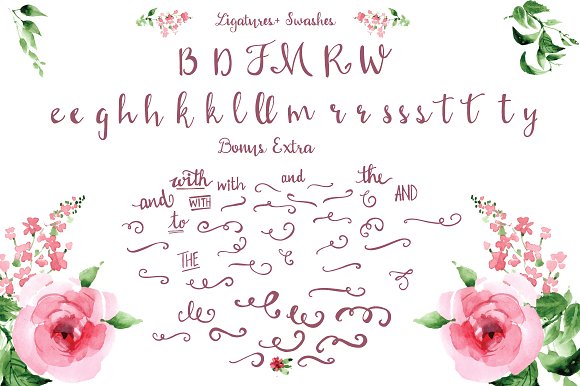 Ligatures+ Swashes
B D F M R W
e e g h h k k l ll m r r s ss st t t t y
Bonus Extra
and with with and the AND
WITH
to
THE